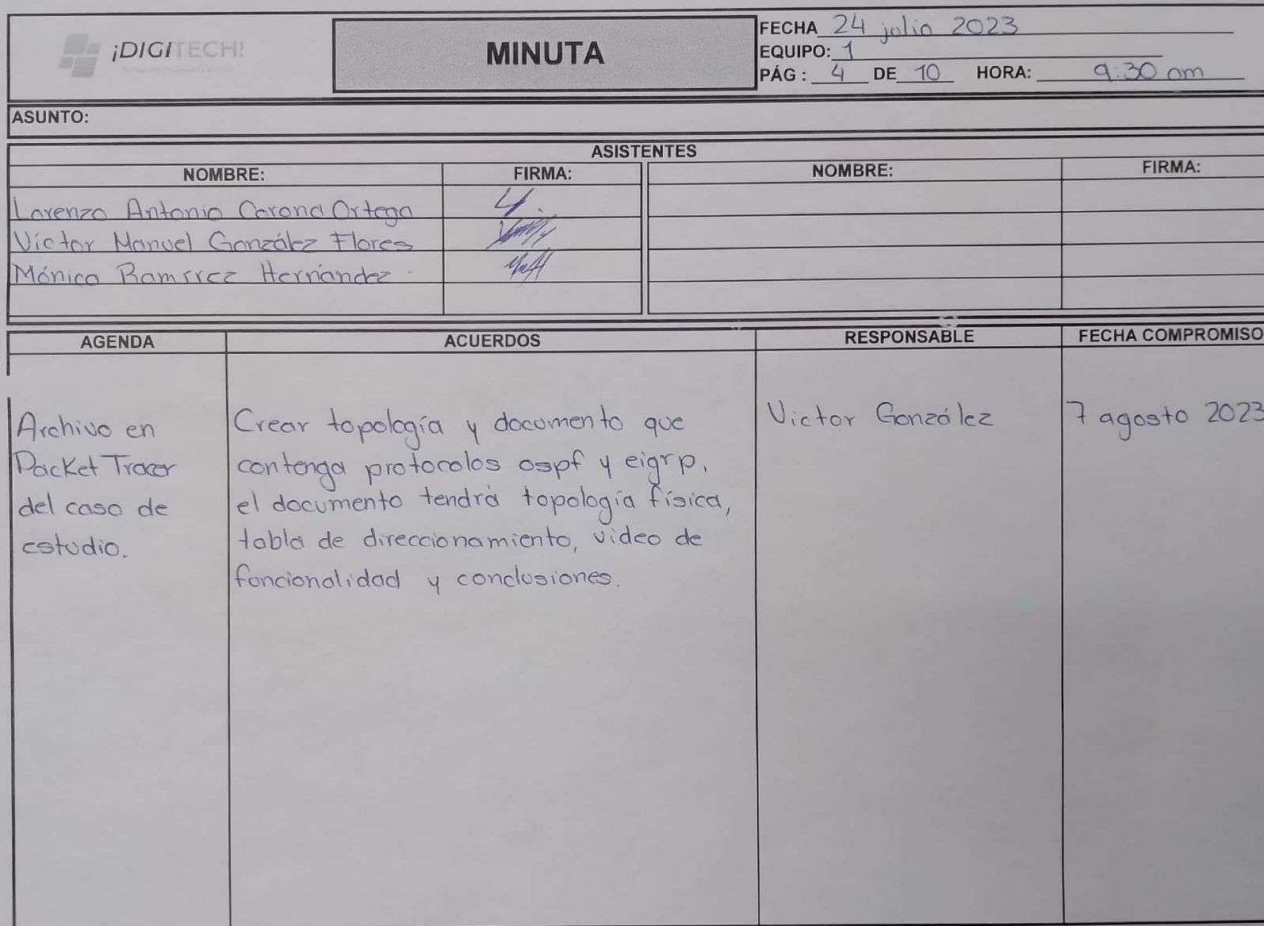 ¡DIGITECH!
MINUTA
FECHA 24 julio 2023
EQUIPO: 1
PÁG : 4 DE 10 HORA: 9:30 am
ASUNTO:
ASISTENTES
NOMBRE: FIRMA: NOMBRE: FIRMA:
Lorenzo Antonio Corona Ortega
Víctor Manuel González Flores
Mónica Ramírez Hernández
AGENDA ACUERDOS RESPONSABLE FECHA COMPROMISO
Archivo en
Packet Tracer
del caso de
estudio.
Crear topología y documento que
contenga protocolos ospf y eigrp,
el documento tendrá topología física,
tabla de direccionamiento, video de
funcionalidad y conclusiones.
Victor González
7 agosto 2023